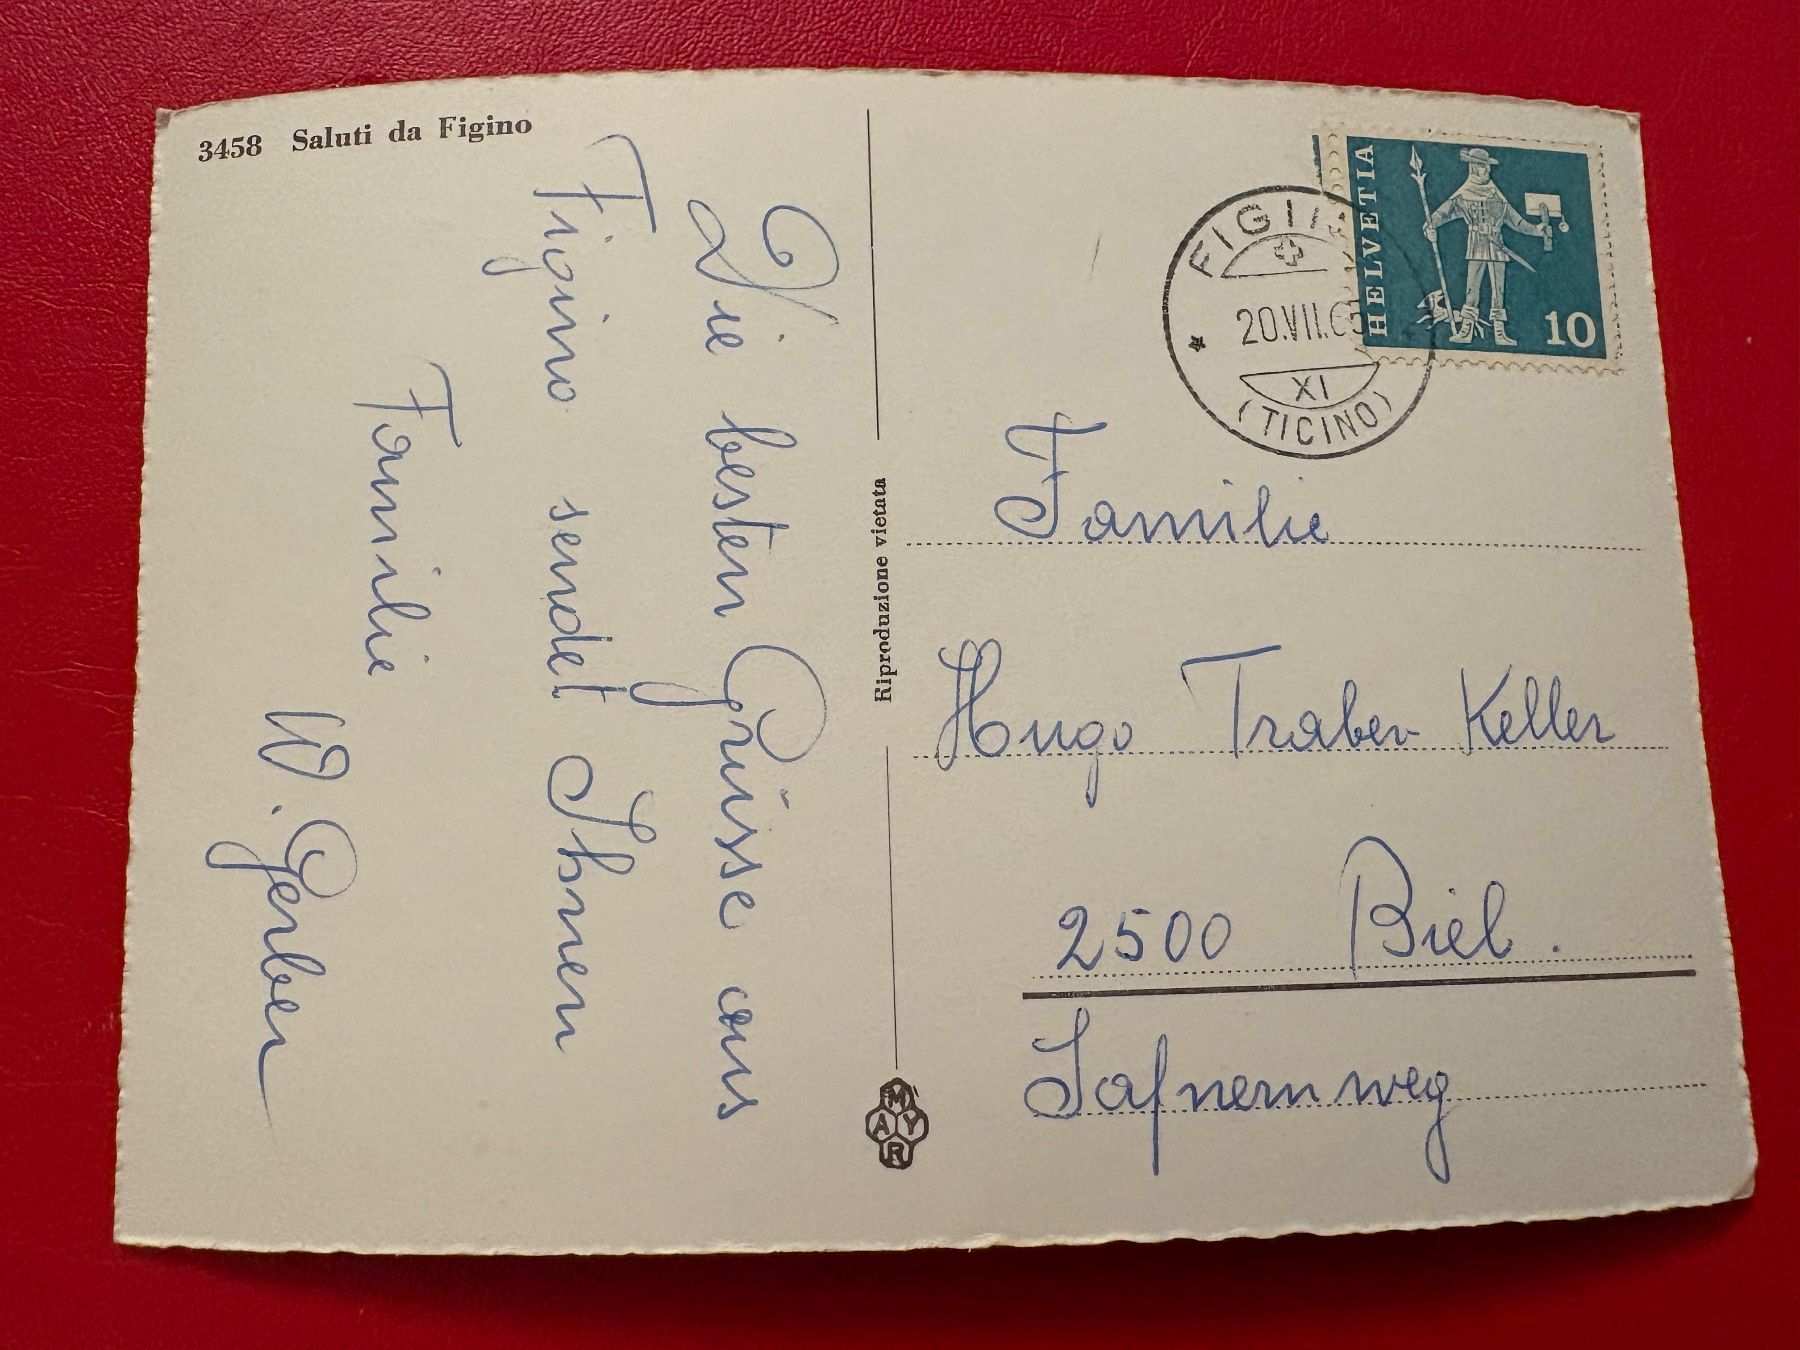 3458 Saluti da Figino
Die besten Grüsse aus
Figino sendet Ihnen
Familie
W. Gerber
Riproduzione vietata
MAYR
FIGINO
20.VII.6
XI
(TICINO)
HELVETIA
10
Familie
Hugo Traber Keller
2500 Biel.
Safnernweg